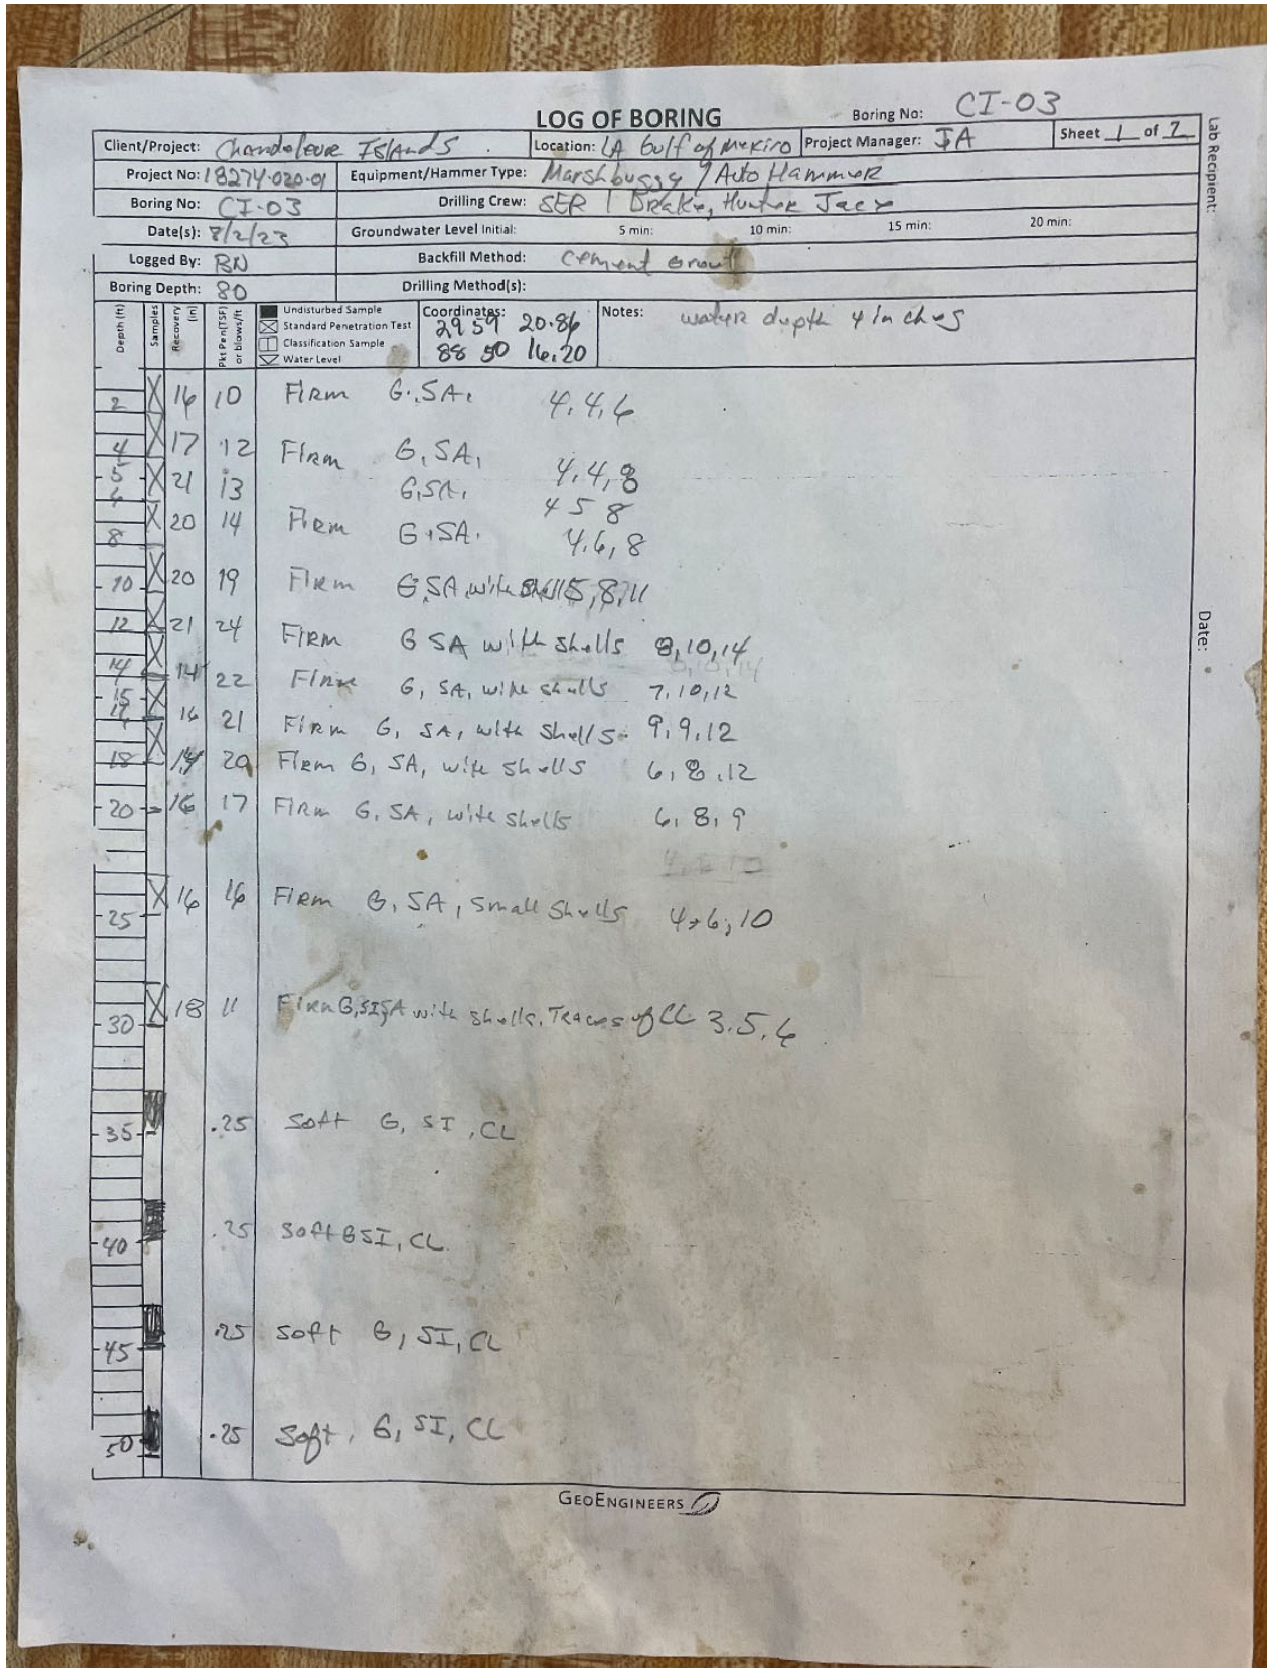 LOG OF BORING
Boring No: CI-03
Client/Project: Chandeleur Islands
Location: LA Gulf of Mexico
Project Manager: JA
Sheet 1 of 2
Lab Recipient:
Project No: 18274-020-01
Equipment/Hammer Type: Marshbuggy / Auto Hammer
Boring No: CI-03
Drilling Crew: SER / Drake, Hunter
Date(s): 8/2/23
Groundwater Level Initial: 5 min: 10 min: 15 min: 20 min:
Logged By: BN
Backfill Method: Cement Grout
Boring Depth: 80
Drilling Method(s):
Depth (ft)
Samples
Recovery (in)
Pkt Pen(TSF) or blows/ft
Undisturbed Sample
Standard Penetration Test
Classification Sample
Water Level
Coordinates:
29 59 20.86
88 50 16.20
Notes: water depth 4 inches
2 16 10 Firm G, SA, 4,4,6
4 17 12 Firm G, SA, 4,4,8
5
6 21 13 G,SA, 4 5 8
8 20 14 Firm G, SA. 4,6,8
10 20 19 Firm G,SA, with 5,8,11
12 21 24 Firm G SA with shells 8,10,14
14 14 22 Firm G, SA, with shells 7,10,12
15
16 21 Firm G, SA, with shells. 9,9,12
18 14 20 Firm G, SA, with shells 6,8,12
20 16 17 Firm G, SA, with shells 6,8,9
25 16 16 Firm G, SA, small shells 4,6,10
30 18 11 Firm G,SI,SA with shells, Traces of CL 3,5,6
35 .25 Soft G, SI, CL
40 .25 Soft G SI, CL
45 .25 Soft G, SI, CL
50 .25 Soft, G, SI, CL
Date:
GEOENGINEERS